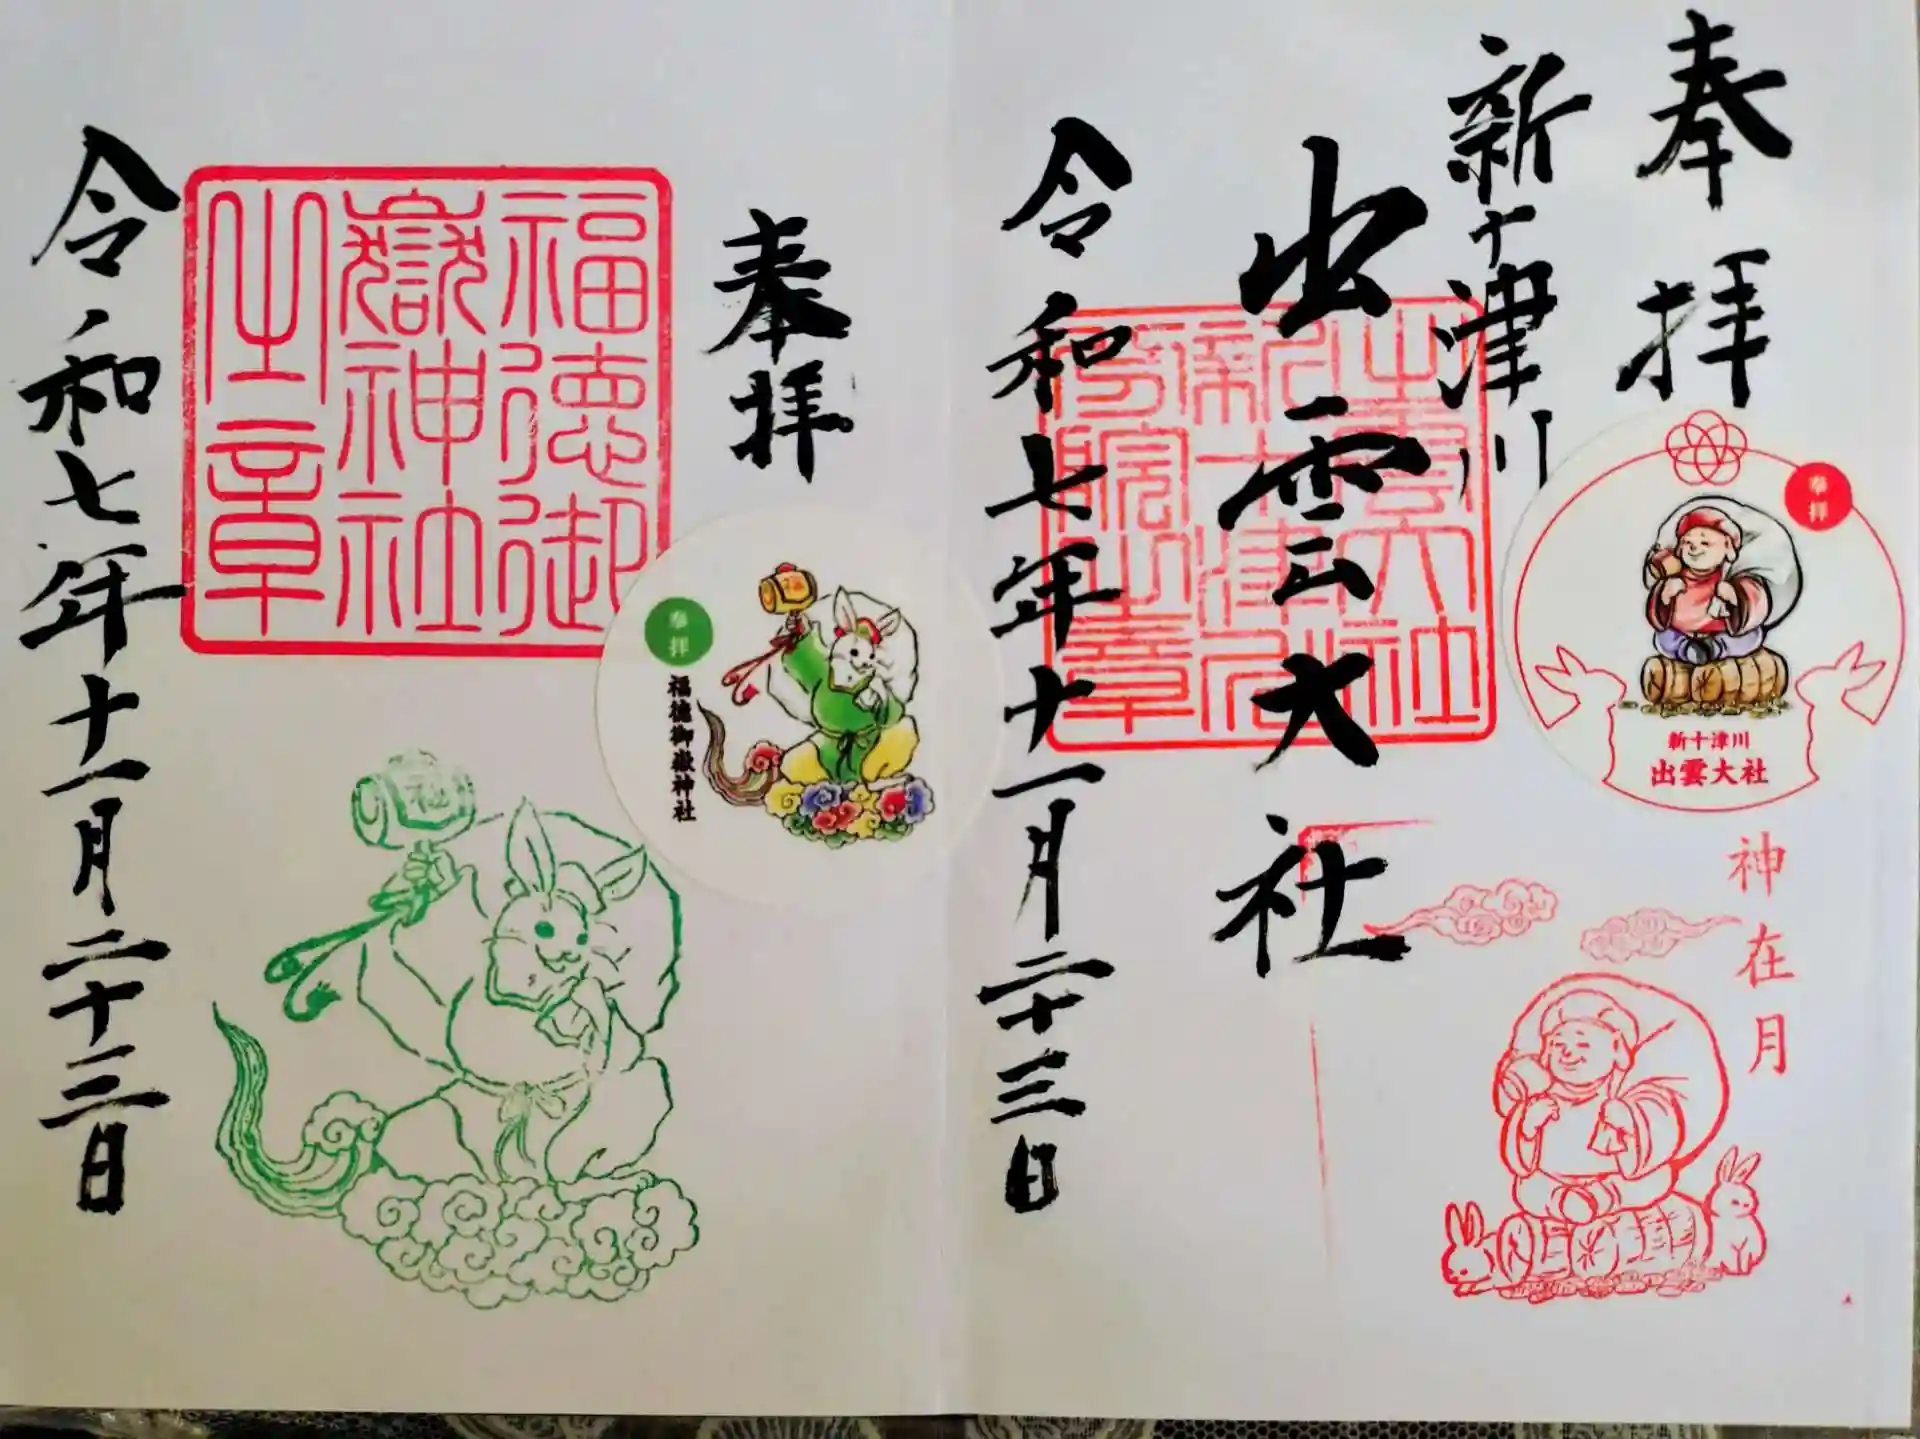 奉拝
新十津川
出雲大社
令和七年十一月二十三日
出雲大社
新十津川
分院之章
奉拝
新十津川
出雲大社
神在月
奉拝
福徳御
嶽神社
之章
令和七年十一月二十三日
奉拝
福徳御嶽神社
福
福